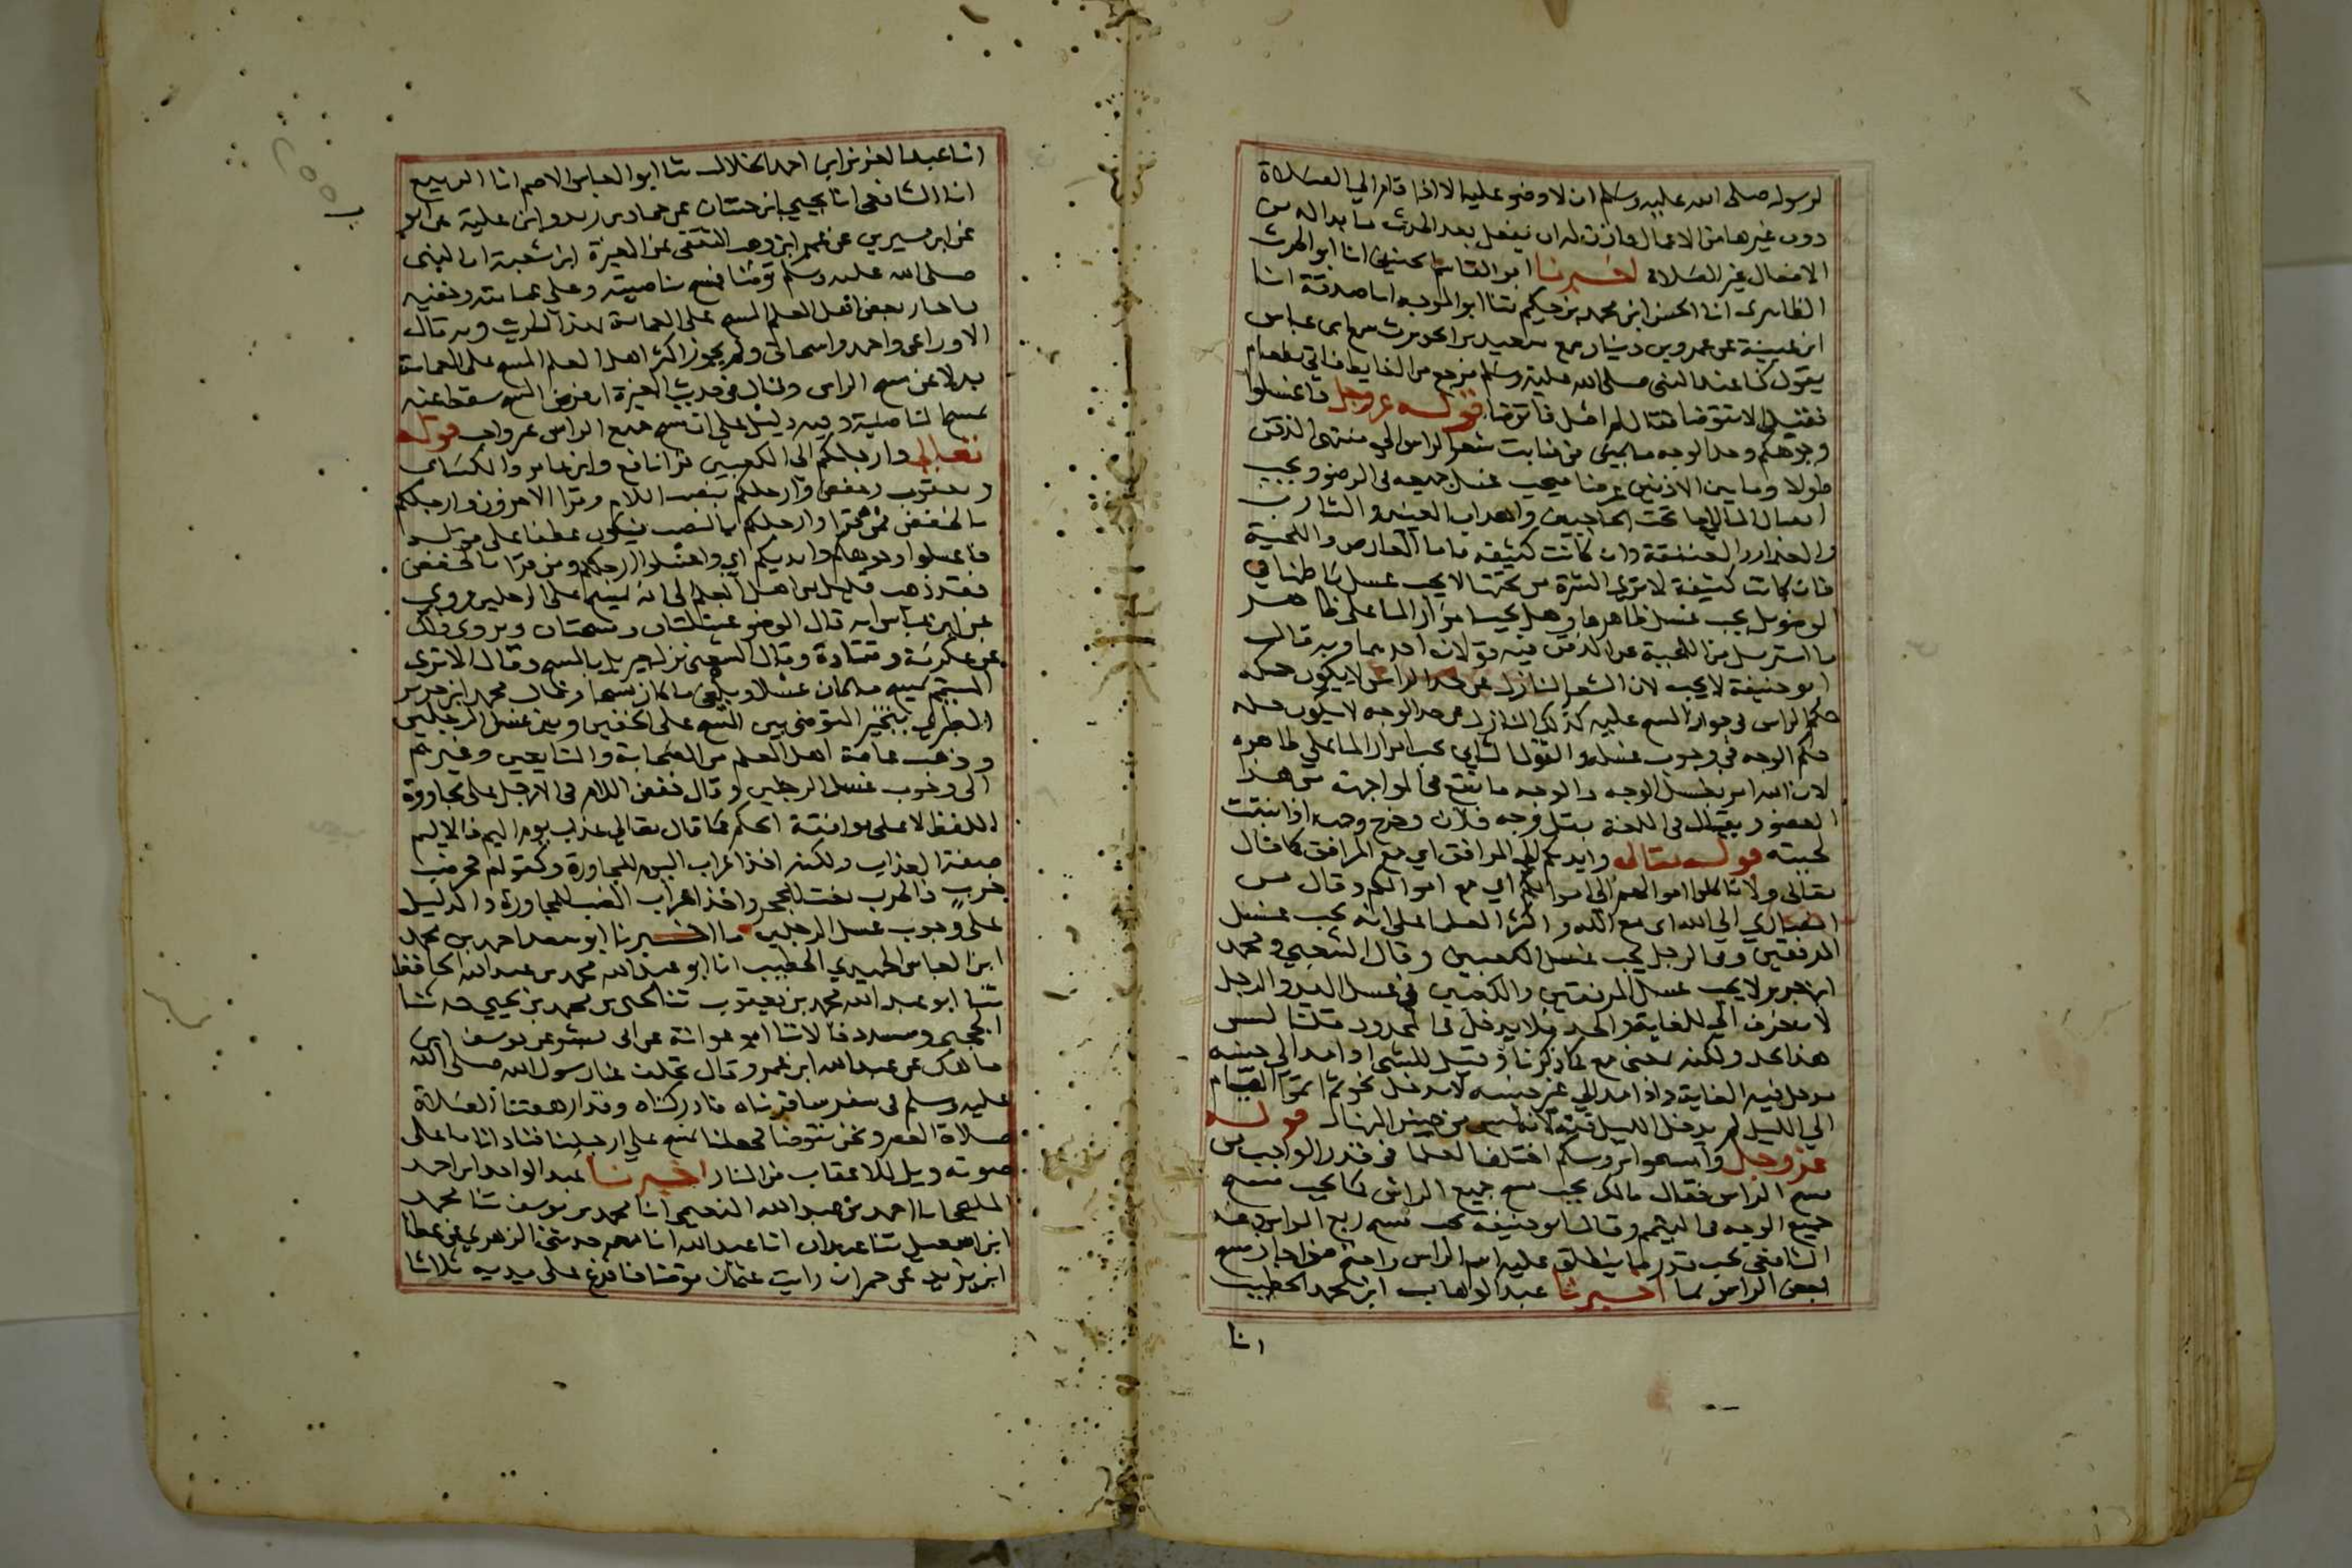 لرسوله صلى الله عليه وسلم ان لا وضو عليه الا اذا قام الي الصلاة
دون غيرها من الاعمال فاذن له ان يفعل بعد الحدث ما بدا له من
الافعال غير الصلاة اخبرنا ابو القاسم الحنيفي انا ابو الحرث
الطاهري انا الحسن ابن محمد بن حكيم ثنا ابو الموجه انا صدقة انا
ابن عيينة عن عمرو بن دينار سمع سعيد بن الحويرث سمع ابن عباس
يقول كنا عند النبي صلى الله عليه وسلم فرجع من الغايط فاتي بطعام
فقيل الا تتوضا فقال لم اصل فاتوضا قوله عز وجل فاغسلوا
وجوهكم وحد الوجه من منابت شعر الراس الي منتهى الذقن
طولا وما بين الاذنين عرضا فيجب غسل جميعه في الوضو ويجب
ايصال الما الي ما تحت الحاجبين واهداب العينين والشارب
والعذار والعنفقة وان كانت كثيفة واما العارض واللحية
فان كانت كثيفة لا ترى البشرة من تحتها لا يجب غسل باطنها في
الوضو بل يجب غسل ظاهرها وهل يجب امرار الما على ظاهر
ما استرسل من اللحية عن الذقن فيه قولان احدهما وبه قال
ابو حنيفة لا يجب لان الشعر النازل عن حد الراس لا يكون حكمه
حكم الراس في جواز المسح عليه كذلك النازل عن حد الوجه لا يكون حكمه
حكم الوجه في وجوب غسله والقول الثاني يجب امرار الما على ظاهره
لان الله امر بغسل الوجه والوجه ما يقع في المواجهة من هذا
العضو ويقال في اللغة بقل وجه فلان وخرج وجهه اذا نبتت
لحيته قوله تعالى وايديكم الي المرافق اي مع المرافق كما قال
تعالى ولا تاكلوا اموالهم الي اموالكم اي مع اموالكم وقال من
انصاري الي الله اى مع الله واكثر العلما على انه يجب غسل
المرفقين وفي الرجل يجب غسل الكعبين وقال الشعبي ومحمد
ابن جرير لا يجب غسل المرفقين والكعبين في غسل اليد والرجل
لان حرف الي للغاية والحد فلا يدخل في المحدود قلنا ليس
هذا بحد ولكنه بمعنى مع كما ذكرنا وقيل للشي اذا مد الي جنسه
يدخل فيه الغاية واذا مد الي غير جنسه لا يدخل نحو ثم اتموا الصيام
الي الليل لم يدخل الليل فيه لانه ليس من جنس النهار قوله
عز وجل وامسحوا بروسكم اختلف العلما في قدر الواجب من
مسح الراس فقال مالك يجب مسح جميع الراس كما يجب مسح
جميع الوجه في التيمم وقال ابو حنيفة يجب مسح ربع الراس وعند
الشافعي يجب قدر ما ينطلق عليه اسم الراس واحتج من اجاز مسح
بعض الراس بما اخبرنا عبد الوهاب ابن محمد الخطيب
انا
انا عبد العزيز ابن احمد الخلال ثنا ابو العباس الاصم انا الربيع
انا الشافعي انا يحيي ابن حسان عن حماد بن زيد وابن علية عن ايوب
عن ابن سيرين عن عمرو ابن وهب الثقفي عن المغيرة ابن شعبة ان النبي
صلى الله عليه وسلم توضا فمسح بناصيته وعلى عمامته وخفيه
فاجاز بعض اهل العلم المسح على العمامة لهذا الحديث وبه قال
الاوزاعي واحمد واسحاق ولم يجوز اكثر اهل العلم المسح على العمامة
بدلا عن مسح الراس وقال في حديث المغيرة ان فرض المسح سقط عنه
بمسح الناصية وفيه دليل على ان مسح جميع الراس غير واجب قوله
تعالى وارجلكم الي الكعبين قرا نافع وابن عامر والكسائي
ويعقوب وحفص وارجلكم بنصب اللام وقرا الاخرون وارجلكم
بالخفض فمن قرا وارجلكم بالنصب فيكون عطفا على قوله
فاغسلوا وجوهكم وايديكم اي واغسلوا ارجلكم ومن قرا بالخفض
فقد ذهب قليل من اهل العلم الى انه يمسح على الرجلين وروي
عن ابن عباس انه قال الوضو غسلتان ومسحتان ويروى ذلك
عن عكرمة وقتادة وقال الشعبي نزل جبريل بالمسح وقال الا ترى
المتيمم يمسح ما كان غسلا ويلغي ما كان مسحا وقال محمد ابن جرير
الطبري يتخير المتوضي بين المسح على الخفين وبين غسل الرجلين
وذهب عامة اهل العلم من الصحابة والتابعين وغيرهم
الي وجوب غسل الرجلين وقال خفض اللام في الارجل على مجاورة
اللفظ لا على موافقة الحكم كما قال تعالى عذاب يوم اليم فالاليم
صفة العذاب ولكنه اخذ اعراب اليوم للمجاورة وكقولهم جحر ضب
خرب فالخرب نعت للجحر واخذ اعراب الضب للمجاورة والدليل
على وجوب غسل الرجلين ما اخبرنا ابو سعد احمد بن محمد
ابن العباس الحميدي الخطيب انا ابو عبد الله محمد بن عبد الله الحافظ
ثنا ابو عبد الله محمد بن يعقوب ثنا يحيى بن محمد بن يحيى حدثنا
الحجبي ومسدد قالا ثنا ابو عوانة عن ابي بشر عن يوسف ابن
ماهك عن عبد الله ابن عمرو قال تخلف عنا رسول الله صلى الله
عليه وسلم في سفر سافرناه فادركناه وقد ارهقتنا الصلاة
صلاة العصر ونحن نتوضا فجعلنا نمسح على ارجلنا فنادانا باعلى
صوته ويل للاعقاب من النار اخبرنا عبد الواحد ابن احمد
المليحي انا احمد بن عبد الله النعيمي انا محمد بن يوسف ثنا محمد
ابن اسمعيل ثنا عبدان انا عبد الله انا معمر حدثني الزهري عن عطا
ابن يزيد عن حمران رايت عثمان توضا فافرغ على يديه ثلاثا